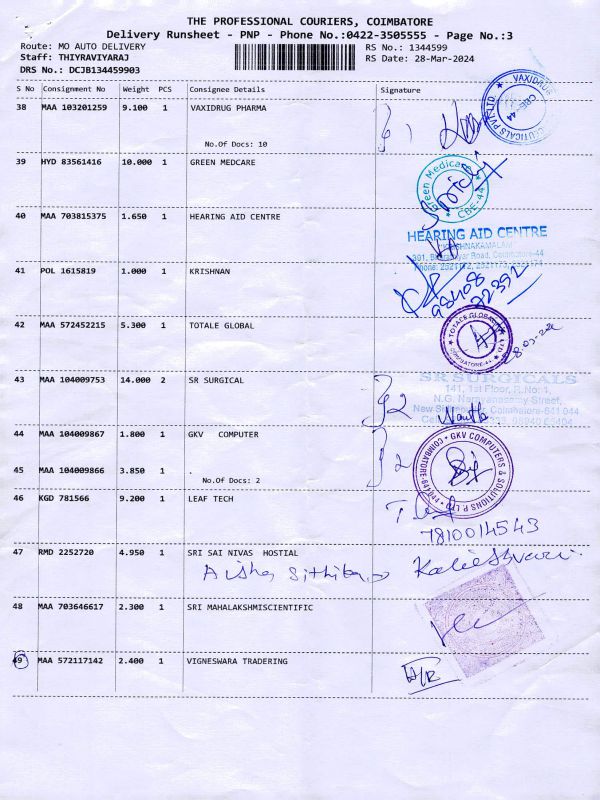 THE PROFESSIONAL COURIERS, COIMBATORE
Delivery Runsheet - PNP - Phone No.:0422-3505555 - Page No.:3
Route: MO AUTO DELIVERY RS No.: 1344599
Staff: THIYRAVIYARAJ RS Date: 28-Mar-2024
DRS No.: DCJB134459903
S No Consignment No Weight PCS Consignee Details Signature
38 MAA 103201259 9.100 1 VAXIDRUG PHARMA
No.Of Docs: 10
39 HYD 83561416 10.000 1 GREEN MEDCARE
Green Medicare CBE-44
40 MAA 703815375 1.650 1 HEARING AID CENTRE
HEARING AID CENTRE
41 POL 1615819 1.000 1 KRISHNAN
98408
22392
42 MAA 572452215 5.300 1 TOTALE GLOBAL
TOTALE GLOBAL
43 MAA 104009753 14.000 2 SR SURGICAL
SR SURGICALS
141, 1st Floor, R.No:1,
N.G. Narayanasamy Street,
2 Nantha
44 MAA 104009867 1.800 1 GKV COMPUTER
2
GKV COMPUTERS & SOLUTIONS P LTD COIMBATORE
45 MAA 104009866 3.850 1 .
No.Of Docs: 2
46 KGD 781566 9.200 1 LEAF TECH
7810014543
47 RMD 2252720 4.950 1 SRI SAI NIVAS HOSTIAL
Kaleeshwari
48 MAA 703646617 2.300 1 SRI MAHALAKSHMISCIENTIFIC
49 MAA 572117142 2.400 1 VIGNESWARA TRADERING